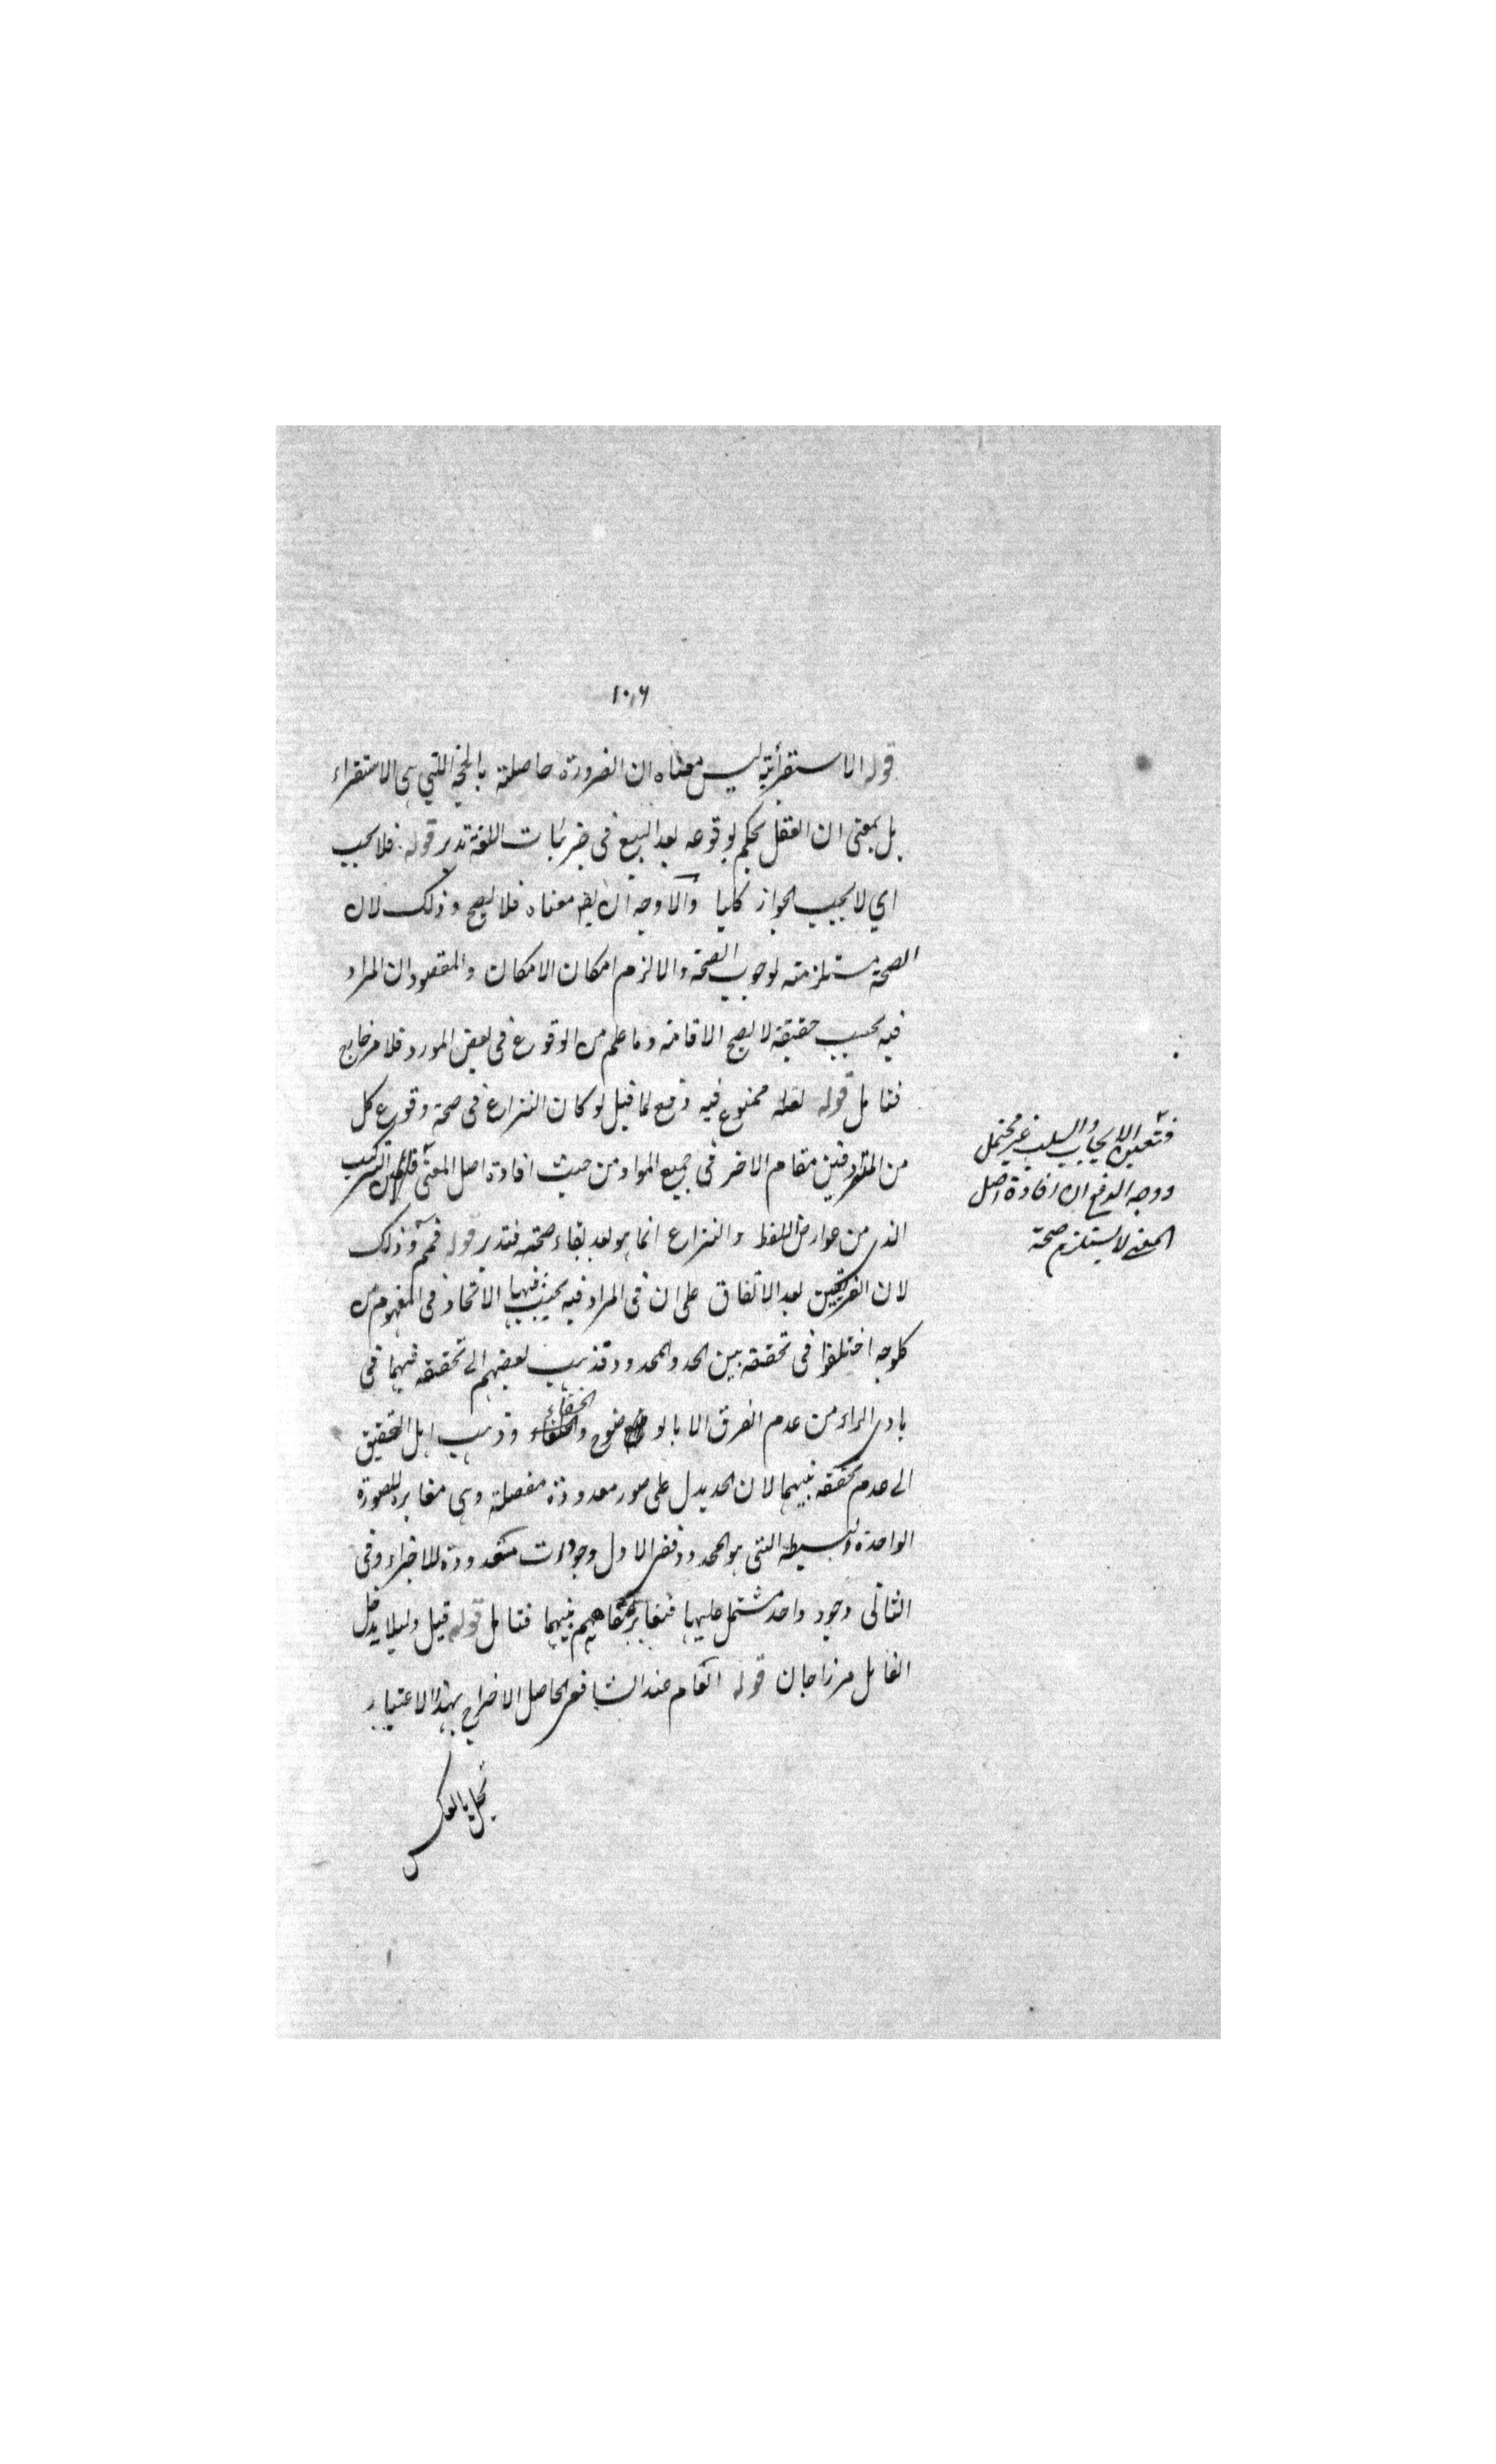 ١٠٦
قوله الاستقرائية ليس معناه ان الضرورة حاصلة بالحجة اللتي هى الاستقراء
بل بمعنى ان العقل يحكم بوقوعه بعد التتبع فى جزئيات اللغة تدبر قوله فلا يجب
اي لا يجب الجواز كليا والاوجه ان يقم معناه فلا يصح وذلك لان
الصحة مستلزمته لوجوب الصحة والا لزم امكان الامكان والمقصود ان المراد
فيه بحسب حقيقة لا يصح الاقامة وما علم من الوقوع فى بعض المورد فلامر خارج
فتامل قوله لعله ممنوع فيه دفع لما قيل لو كان النزاع فى صحة وقوع كل
من المترادفين مقام الاخر فى جميع المواد من حيث افادة اصل المعنى التركيب
الذى من عوارض اللفظ والنزاع انما هو بعد بقاء صحته فتدبر قوله فمم وذلك
لان الفريقين بعد الاتفاق على ان فى المرادفيه يجب فيها الاتحاد فى المفهوم من
كل وجه اختلفوا فى تحققه بين الحد والمحدود فذهب بعضهم الى تحققه فيهما فى
بادى الراء من عدم الفرق الا بالوضوح والخفاء وذهب اهل التحقيق
الى عدم تحققه فيهما لان الحد يدل على صور معدودة مفصلة وهى مغايرة للصورة
الواحدة البسيطه التى هو المحدود ففى الاول وجودات متعدودة للاجزاء وفى
الثانى وجود واحد مشتمل عليها فتغاير مفاهيم فيهما فتامل قوله قيل دليلا يدخل
القايل مرزاجان قوله العام عند الشافعى الحاصل الاخراج بهذا الاعتبار
فتعين الايجاب والسلب غير محتمل
ووجه الدفع ان افادة اصل
المعنى لا يستلزم صحة